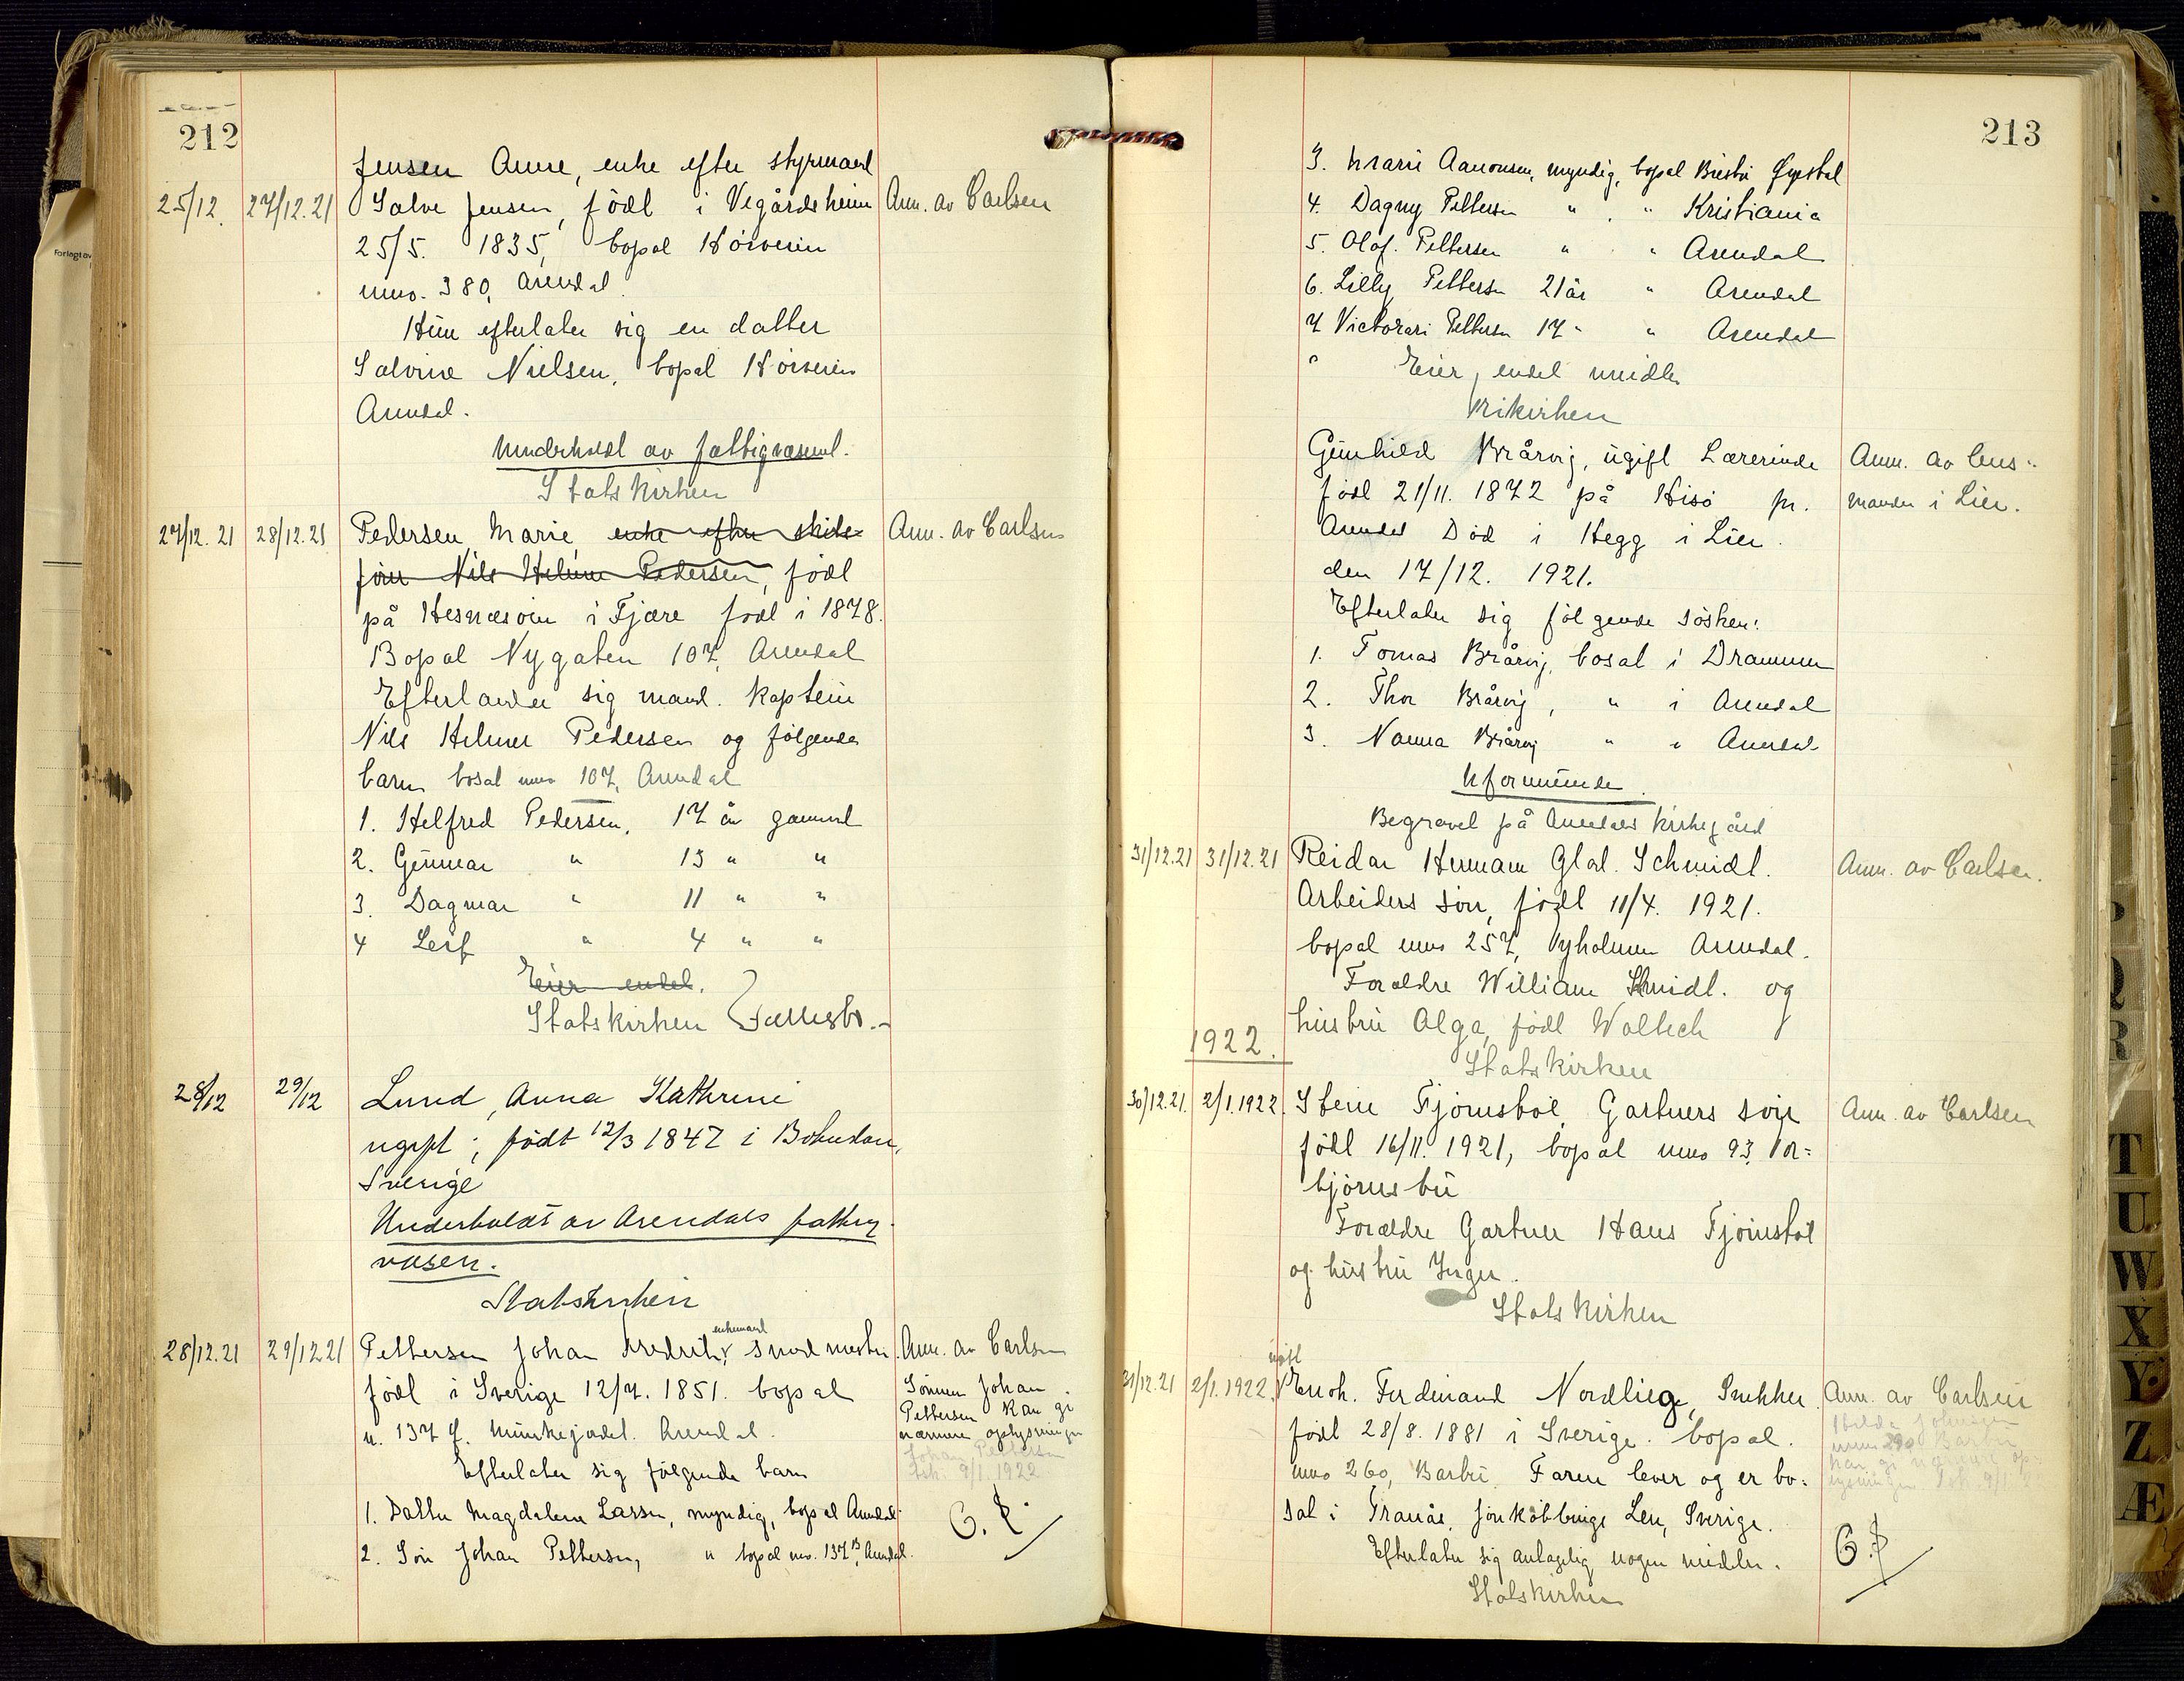 212
Jensen Anne, enke efter styrmand
25/12. 27/12.21 Salve Jensen, födt i Vegårdsheim Anm. av Carlsen
25/5. 1835, bopal
mno. 380, Arendal.
Hun efterlater sig en datter
Salvine Nielsen, bopal
Arendal.
Underholdt av fattigvæsenet.
Statskirken
27/12.21 28/12.21 Pedersen Marie, enke efter skibs- Anm. av Carlsen
förer Nils Helmer Pedersen, födt
på Hesnæsöen i Fjære födt i 1878.
Bopal Nygaten 107, Arendal
Efterlander sig mand. Kaptein
Nils Helmer Pedersen og følgende
barn bosat mno 107, Arendal
1. Helfred Pedersen, 17 år gammel
2. Gunnar " 13 " "
3. Dagmar " 11 " "
4 Leif " 4 " "
Eier endel.
Statskirken Fællesbo.-
28/12 29/12 Lund, Anna Kathrine
ugift; födt 12/3 1847 i
Sverige
Underholdt av Arendals fattig-
væsen.
Statskirken
28/12.21 29/12.21 Pettersen Johan Fredrik, enkemand Anm. av Carlsen
födt i Sverige 12/7. 1851. bopal Sönnen Johan
n. 137 Munkejordet. Arendal. Pettersen kan gi
nærmere oplysninger
Johan Pettersen
9/1. 1922
Efterlater sig følgende barn
1. Datter Magdalene Larsen, myndig, bopal Arendal.
2. Sön Johan Pettersen, " bopal mno. 137B, Arendal.
213
3. Marie Aanonsen, myndig, bopal Øyestad
4. Dagny Pettersen " " Kristiania
5. Olaf. Pettersen " " Arendal
6. Lilly Pettersen 21 år " Arendal
7 Pettersen 17 " " Arendal
Eier endel midler
Frikirken
Gunhild Brårvig, ugift Lærerinde Anm. av lens-
födt 21/11. 1872 på Hisö pr. manden i Lier.
Arendal Död i Hegg i Lier.
den 17/12. 1921.
Efterlater sig følgende søsken:
1. Tomas Brårvig, bosat i Drammen
2. Thor Brårvig, " i Arendal
3. Nanna Brårvig " " Arendal
Uformuende.
Begravet på Arendals kirkegård
31/12.21 31/12.21 Reidar Hermann Schmidt. Anm. av Carlsen.
Arbeiders sön, födt 11/4. 1921.
bopal mno 257, Arendal.
Forældre William Schmidt. og
hustru Olga, födt
Statskirken
1922.
30/12.21. 2/1.1922 Stein Fjörnsböl Gartners sön Anm. av Carlsen
födt 16/11. 1921, bopal mno 93, Tor=
björnsbu
Forældre Gartner Hans
og hustru Inger.
Statskirken
ugift
31/12.21 2/1.1922. Enoh. Ferdinand Nordling, Snekker. Anm. av Carlsen
födt 28/8. 1881 i Sverige. bopal.
mno 260, Barbu. Faren lever og er bo=
sat i Tranås, Jönköbbings Len, Sverige.
Efterlater sig antagelig nogen midler.
Statskirken